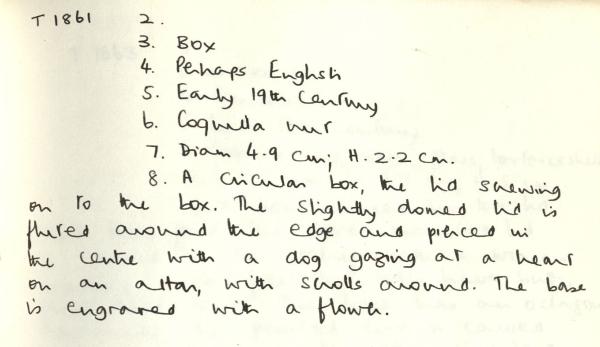 T 1861 2.
3. Box
4. Perhaps English
5. Early 19th Century
6. Coquilla nut
7. Diam 4.9 cm; H. 2.2 cm.
8. A circular box, the lid screwing
on to the box. The slightly domed lid is
fluted around the edge and pierced in
the centre with a dog gazing at a heart
on an altar, with scrolls around. The base
is engraved with a flower.